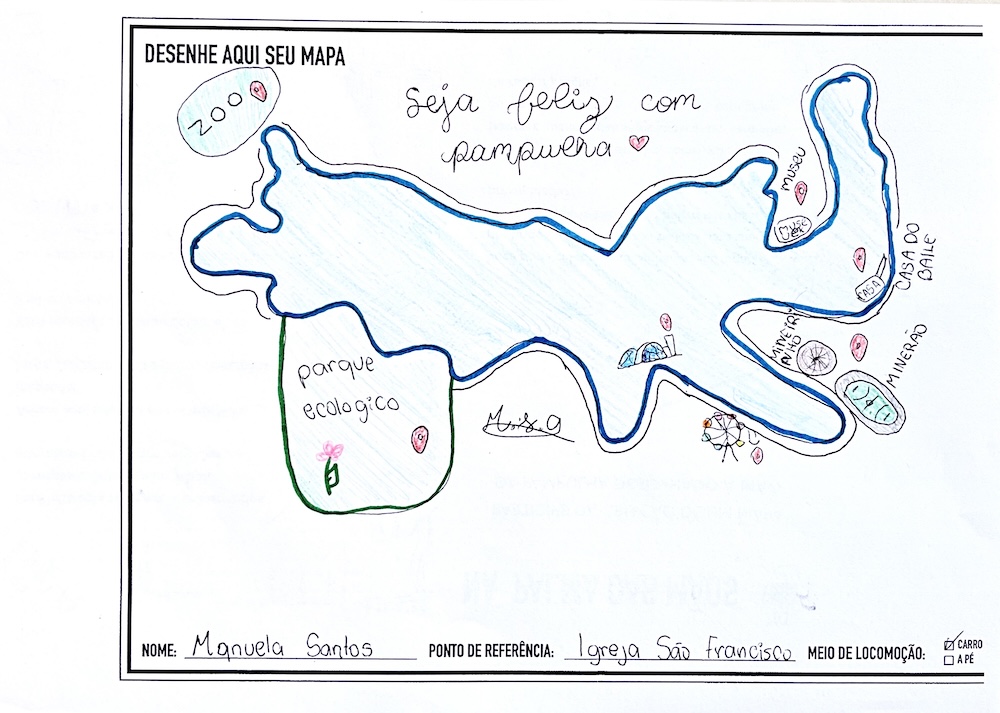 DESENHE AQUI SEU MAPA
ZOO
Seja feliz com
pampulha
MUSEU
CASA DO
BAILE
CASA
MINEIRI
NHO
MINEIRÃO
parque
ecologico
NOME: Manuela Santos PONTO DE REFERÊNCIA: Igreja São Francisco MEIO DE LOCOMOÇÃO:
CARRO
A PÉ